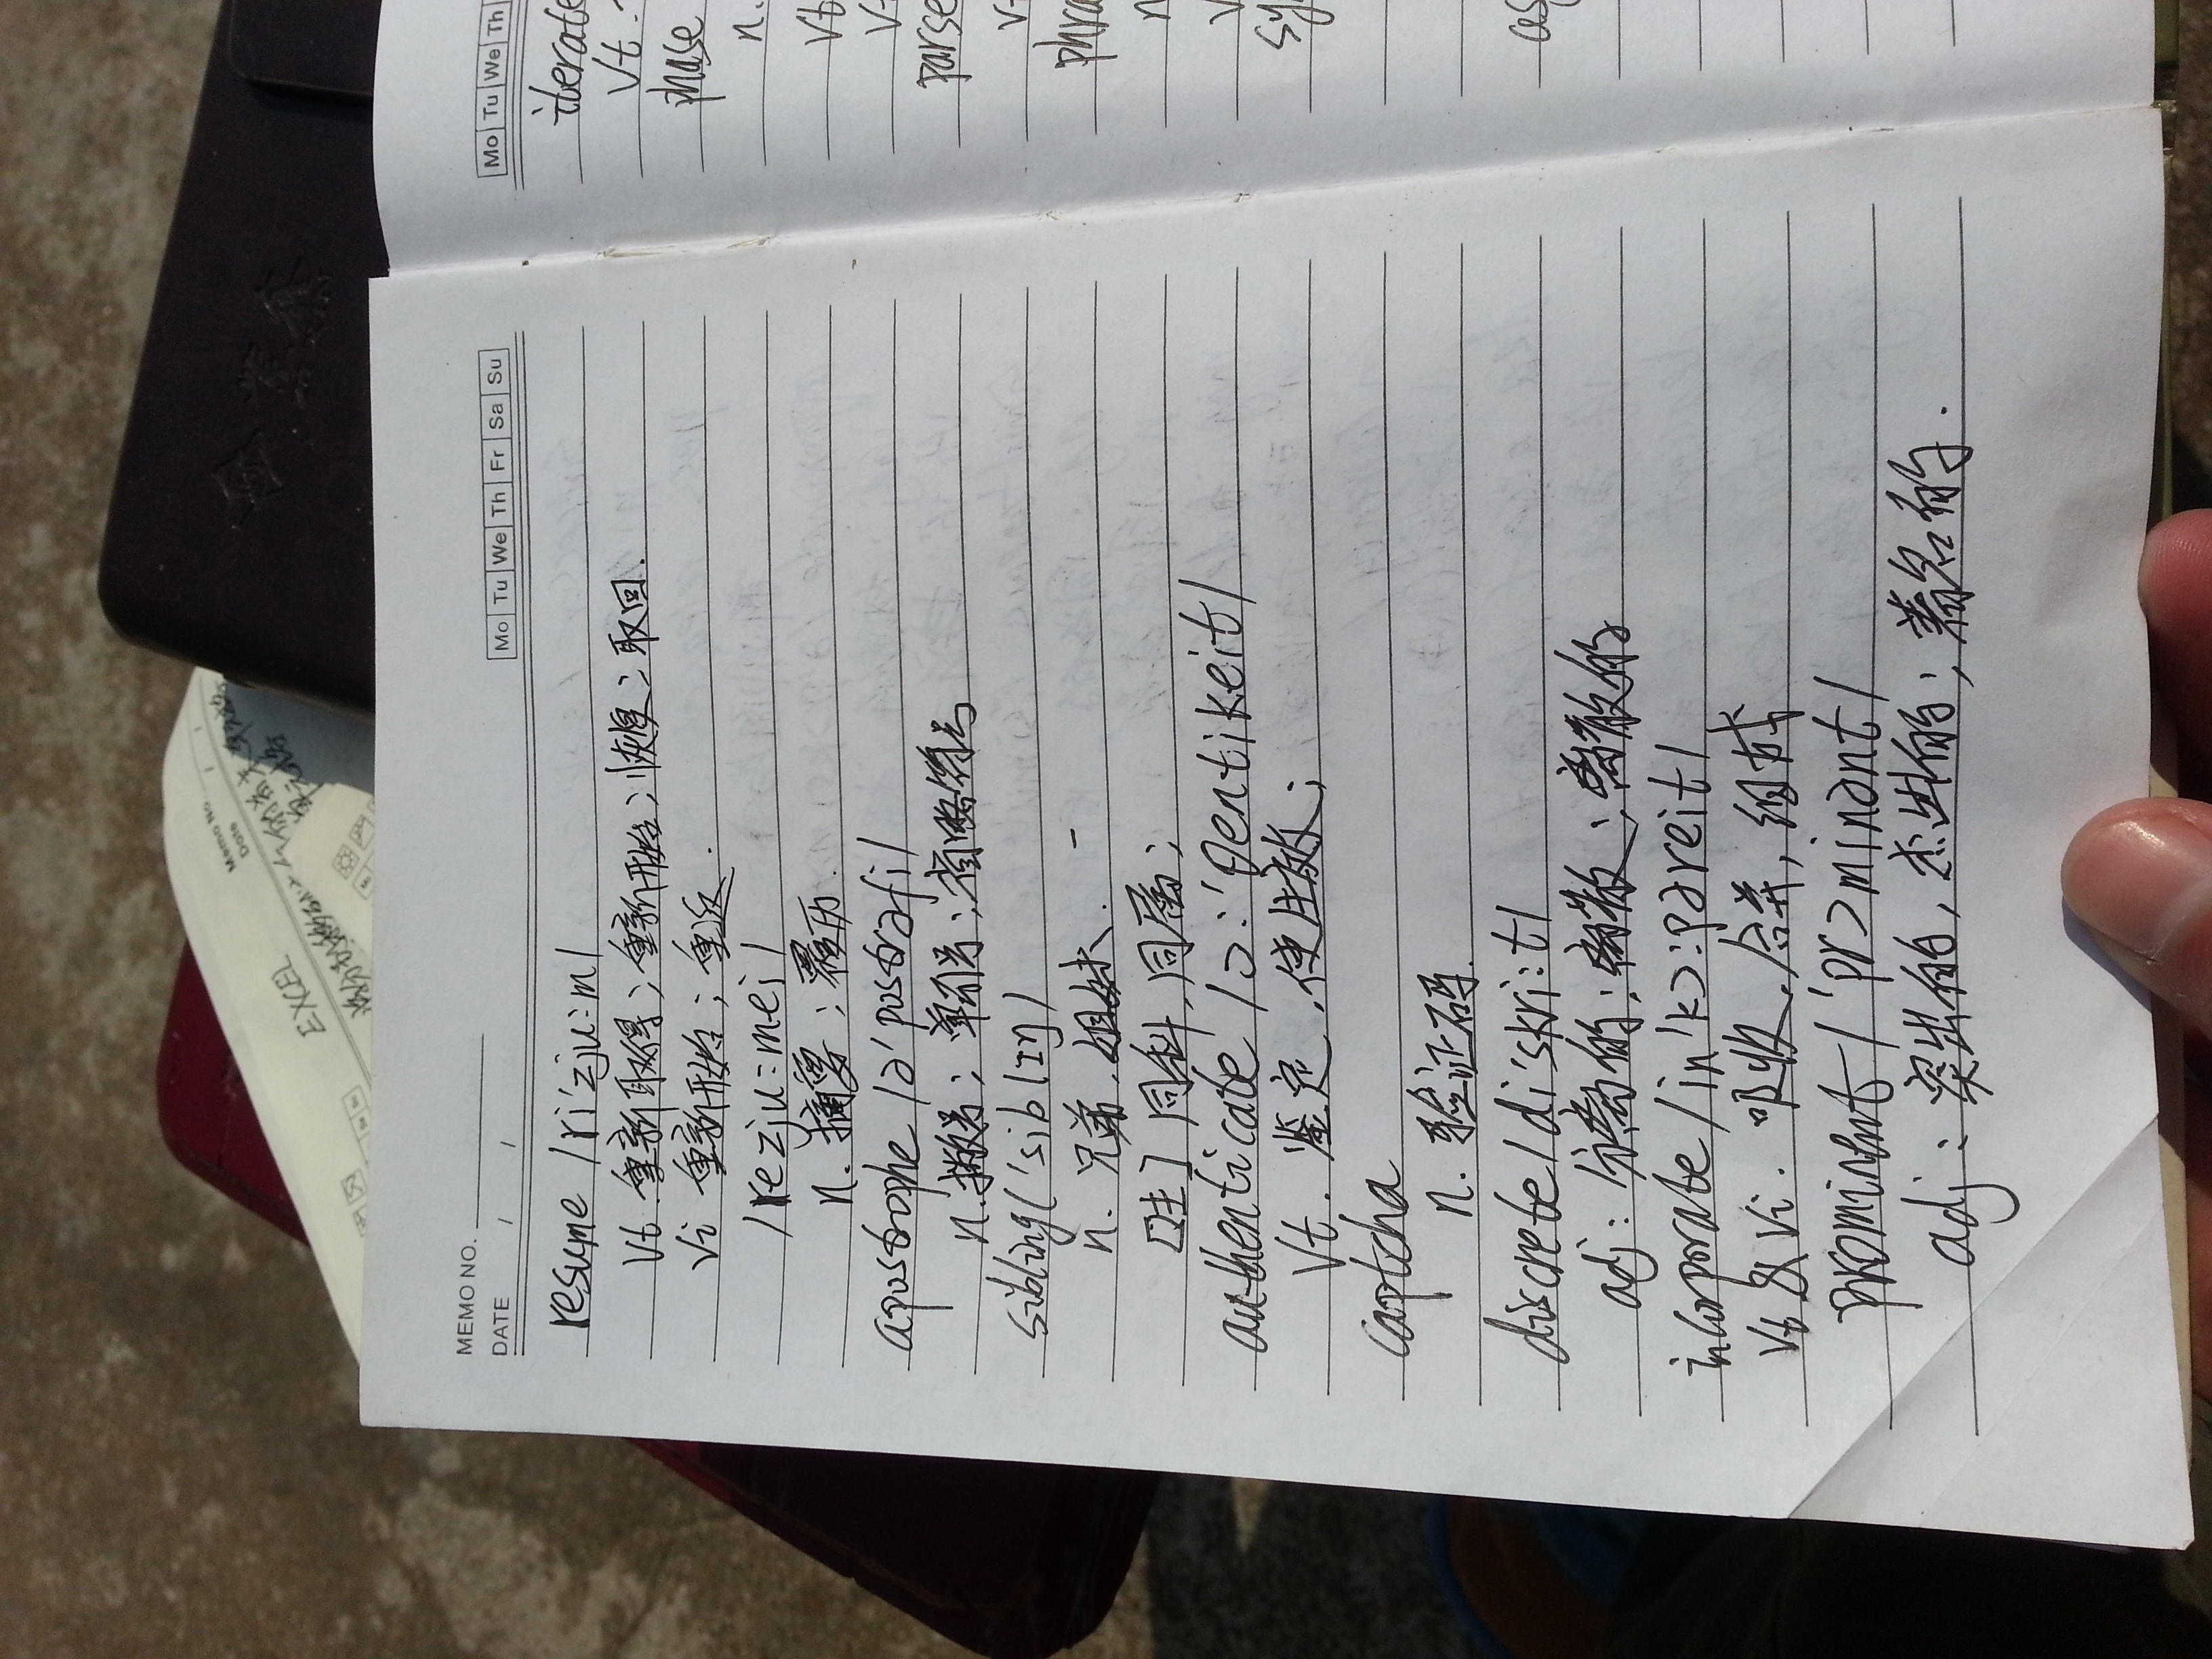 Memo No.
Date / /
EXCEL
MEMO NO.
DATE / /
Mo Tu We Th Fr Sa Su
resume /ri'zju:m/
Vt. 重新取得；重新开始；恢复；取回.
Vi 重新开始；重返.
/rezju:mei/
n. 摘要；履历.
apostrophe /ə'postrəfi/
n. 撇号；单引号；省略符号
sibling('siblIŋ)
n. 兄弟，姐妹.
[生] 同科，同属；
authenticate /ɔ:'θentikeit/
Vt. 鉴定，使生效；
captcha
n. 验证码.
discrete /di'skri:t/
adj: 分离的；离散；离散的
incorporate /in'kɔ:pəreit/
Vt & Vi. 吸收，合并，组成
prominent /'prɔminənt/
adj: 突出的，杰出的；著名的.
Mo Tu We Th
iterate
Vt.
phase
n.
Vt
V
parse
V
phra
n
V
sy
as